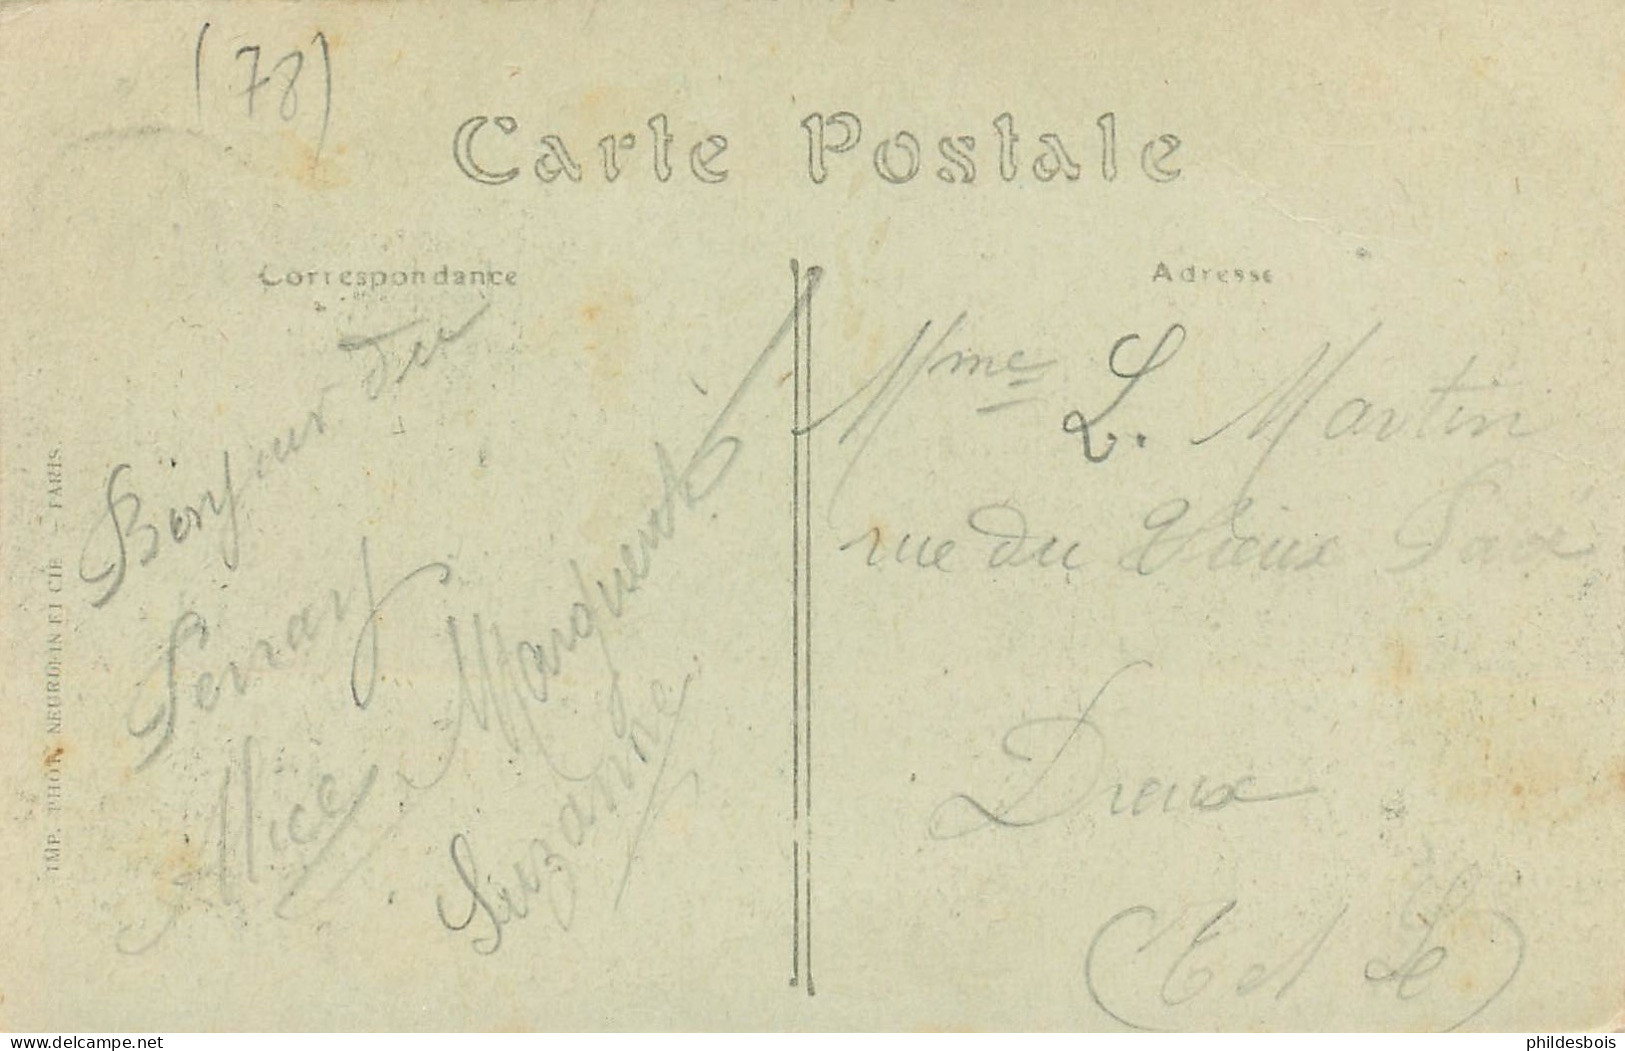 (78)
Carte Postale
Correspondance
Adresse
Bonjour du
Perray
Alice Marguerite
Suzanne
Mme L. Martin
rue du Vieux Pavé
Dreux
(E et L)
IMP. PHOT. NEURDEIN ET CIE — PARIS
delcampe.net
phildesbois